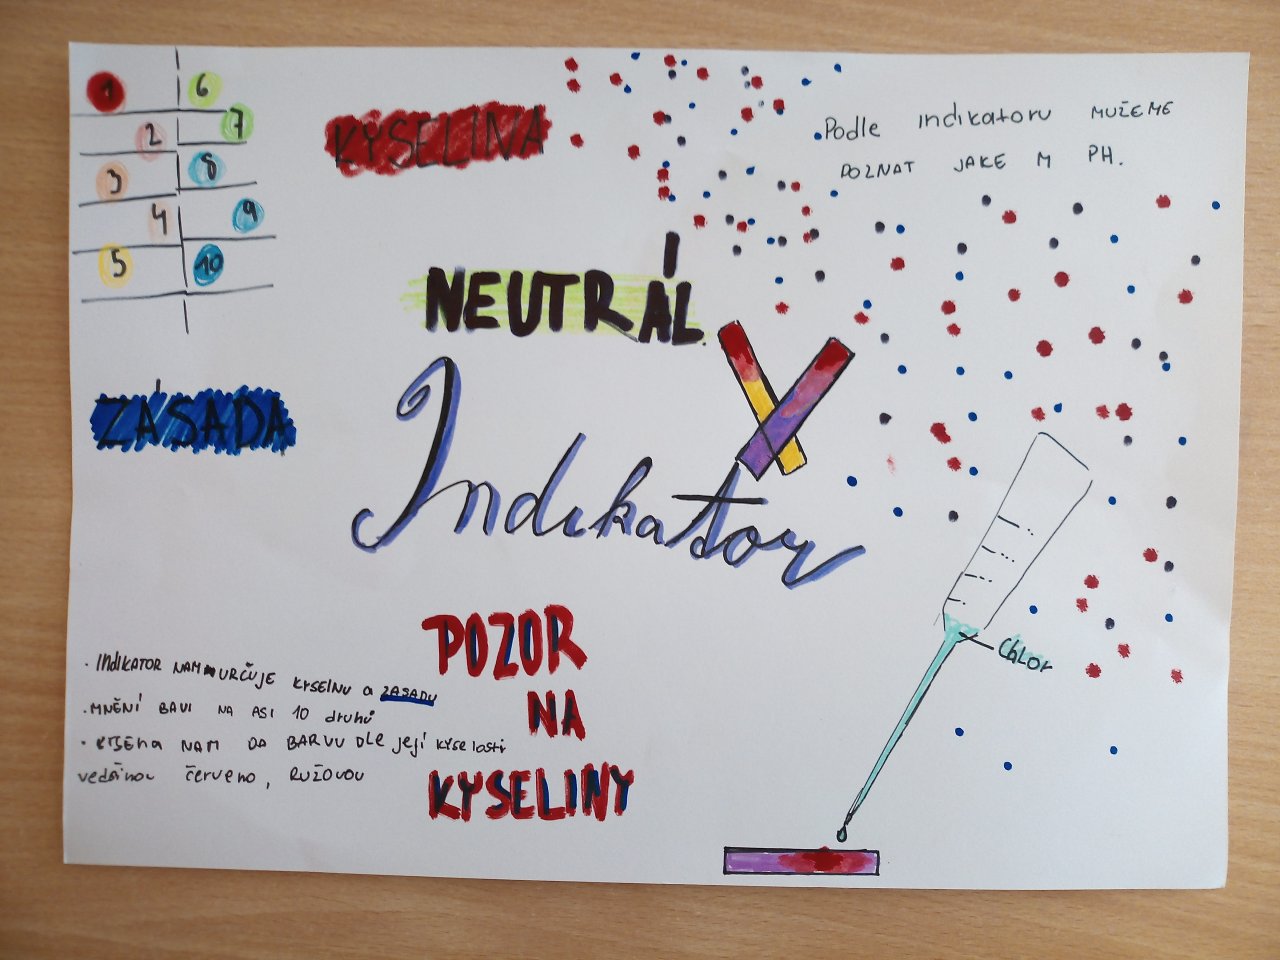 1
6
2
7
3
8
4
9
5
10
KYSELINA
Podle indikatoru MUŽEME
POZNAT JAKE M PH.
NEUTRÁL
ZÁSADA
Indikator
POZOR
NA
KYSELINY
· INDIKATOR NAM URČUJE KYSELNU a ZASADU
· MNĚNÍ BAVI NA ASI 10 druhů
· NAM DA BARVU DLE její kyselosti
vedšinou červeno, RUŽOVOU
Chlor